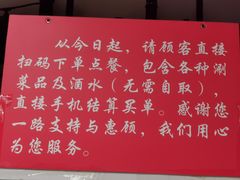 从今日起，请顾客直接
扫码下单点餐，包含各种涮
菜品及酒水（无需自取），
直接手机结算买单。感谢您
一路支持与惠顾，我们用心
为您服务。